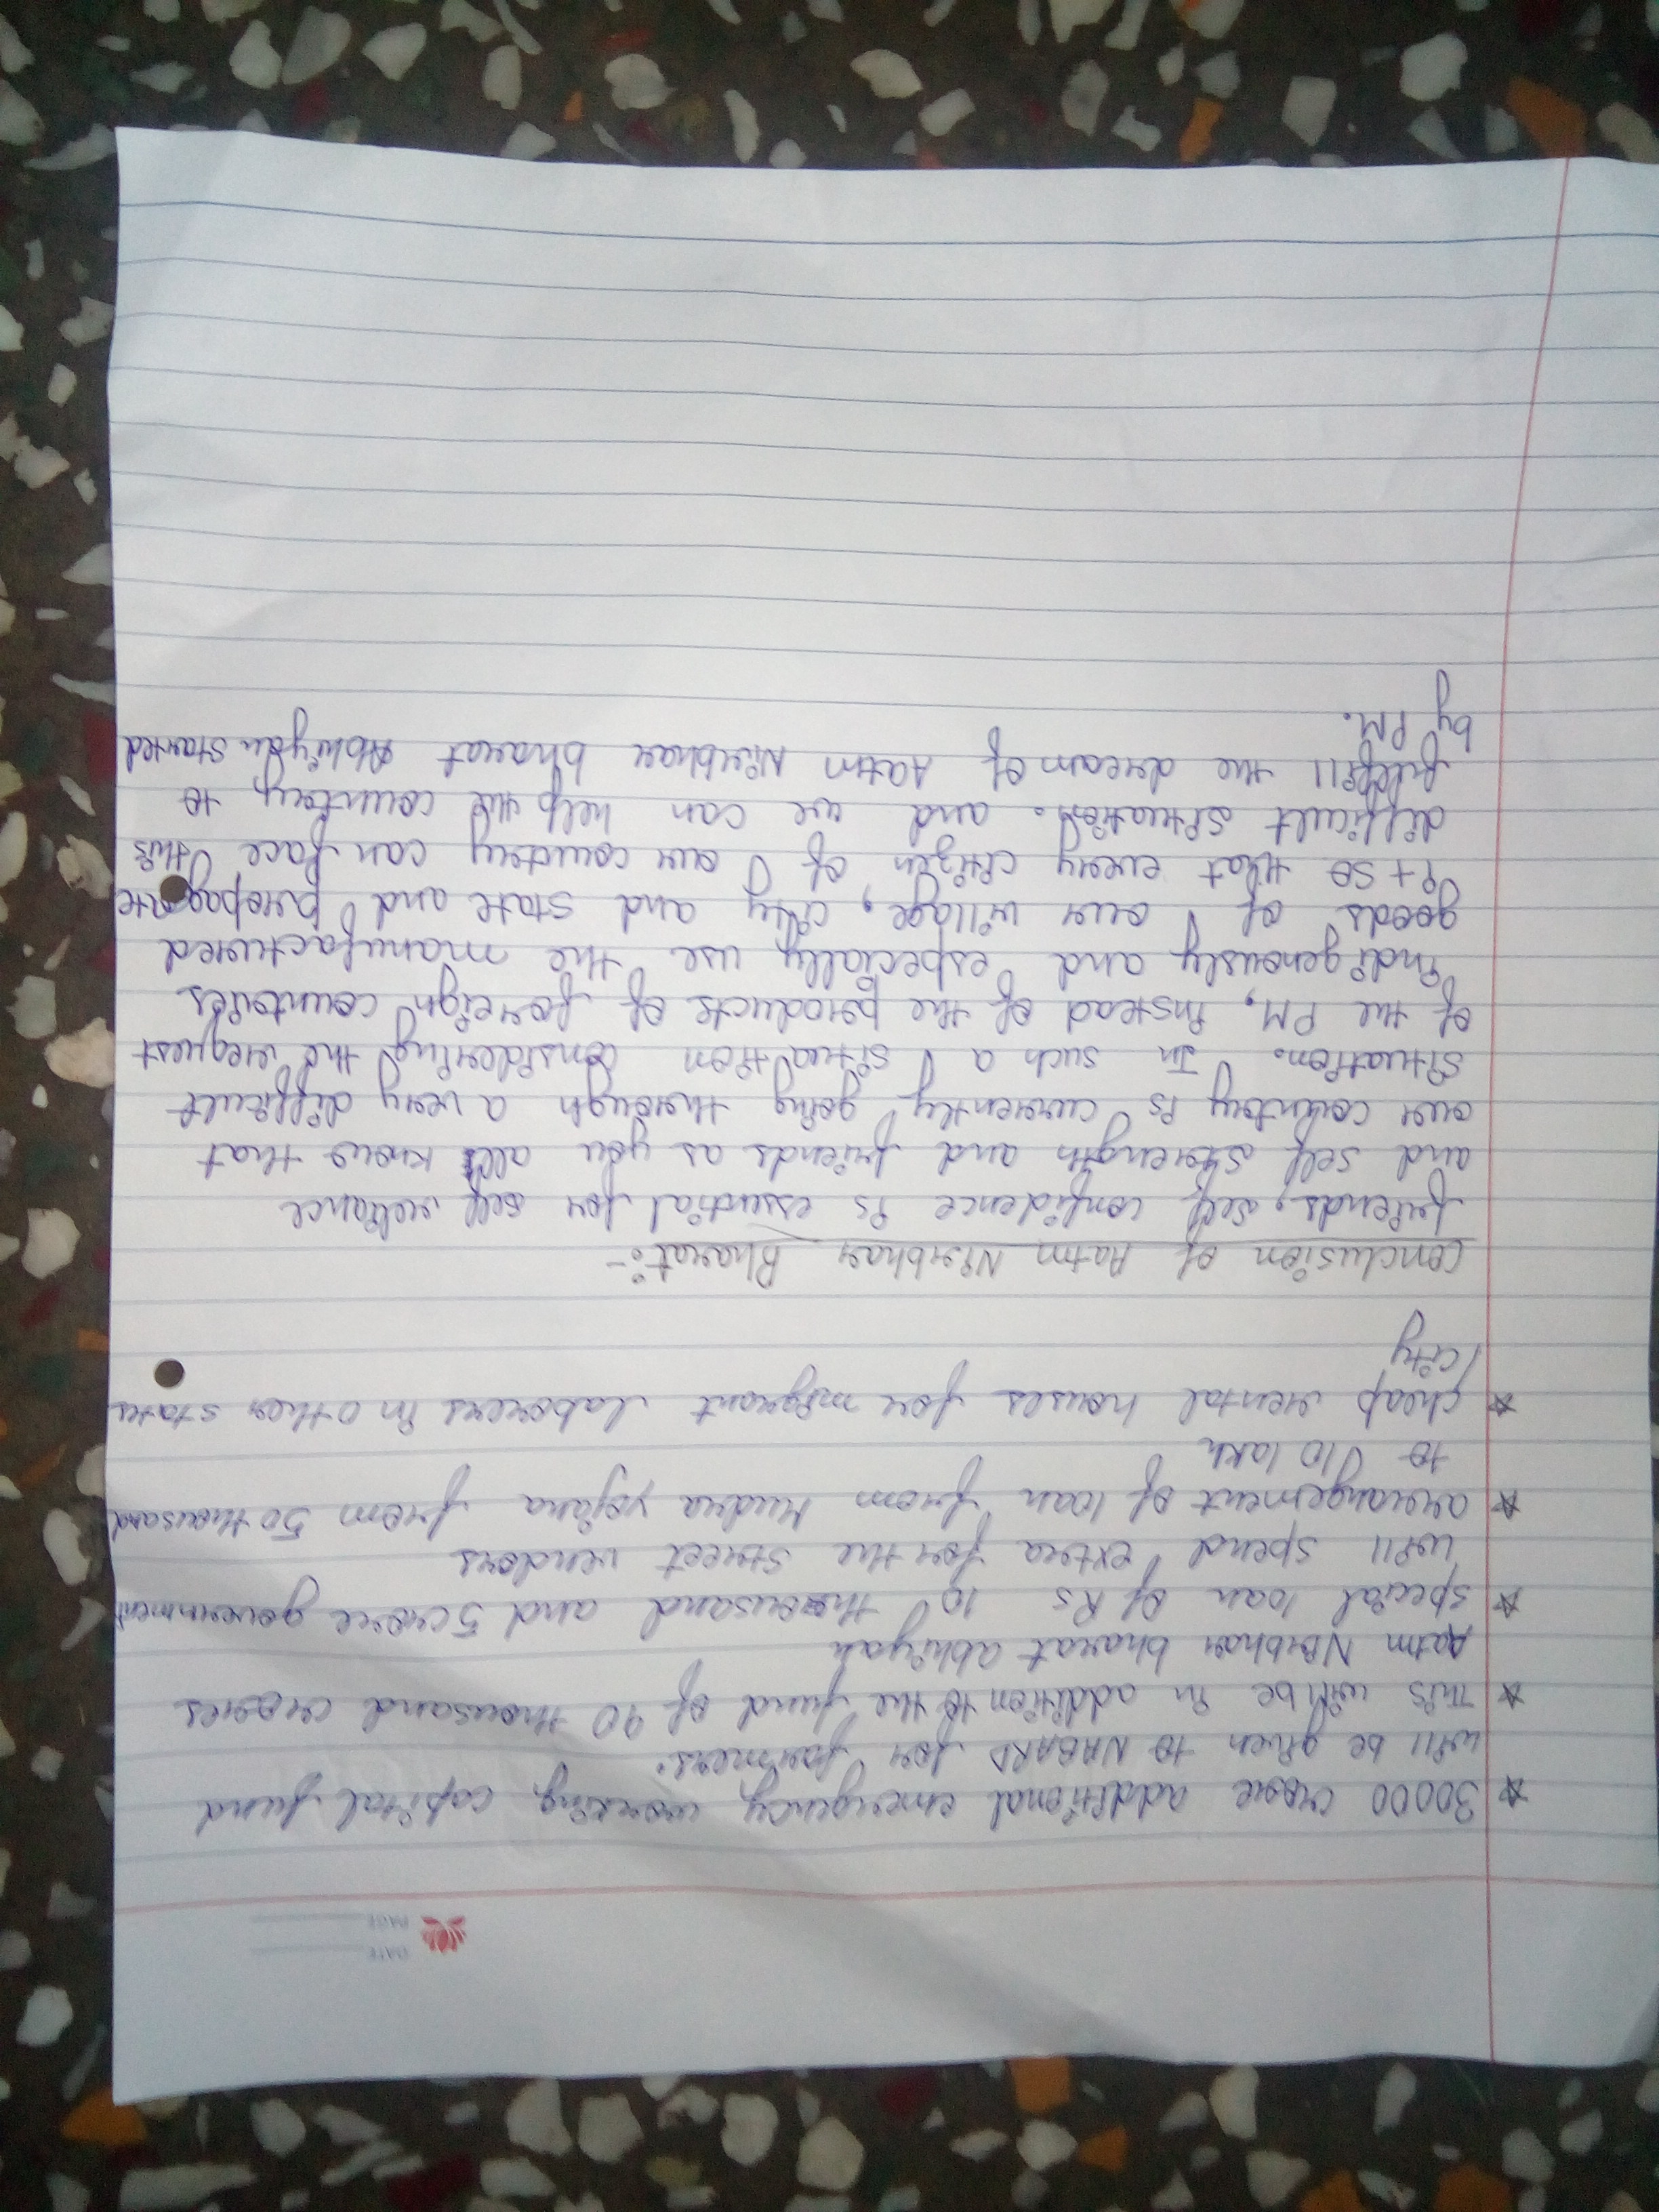 DATE
PAGE
☆ 30000 crore additional emergency working capital fund
will be given to NABARD for farmers.
☆ This will be in addition to the fund of 90 thousand crores
Aatm Nirbhar bharat abhiyan
☆ special loan of Rs 10 thousand and 5 crore government
will spend extra for the street vendors
☆ arrangement of loan from Mudra yojana from 50 thousand
to 10 lakh
☆ cheap rental houses for migrant laborers in other states
/city
Conclusion of Aatm Nirbhar Bharat:-
friends, self confidence is essential for self reliance
and self strength and friends as you all know that
our country is currently going through a very difficult
situation. In such a situation considering the request
of the PM, instead of the products of foreign countries
indigenously and especially use the manufactured
goods of our village, city and state and propagate
it so that every citizen of our country can face this
difficult situation. and we can help the country to
fulfill the dream of Aatm Nirbhar bharat Abhiyan started
by PM.